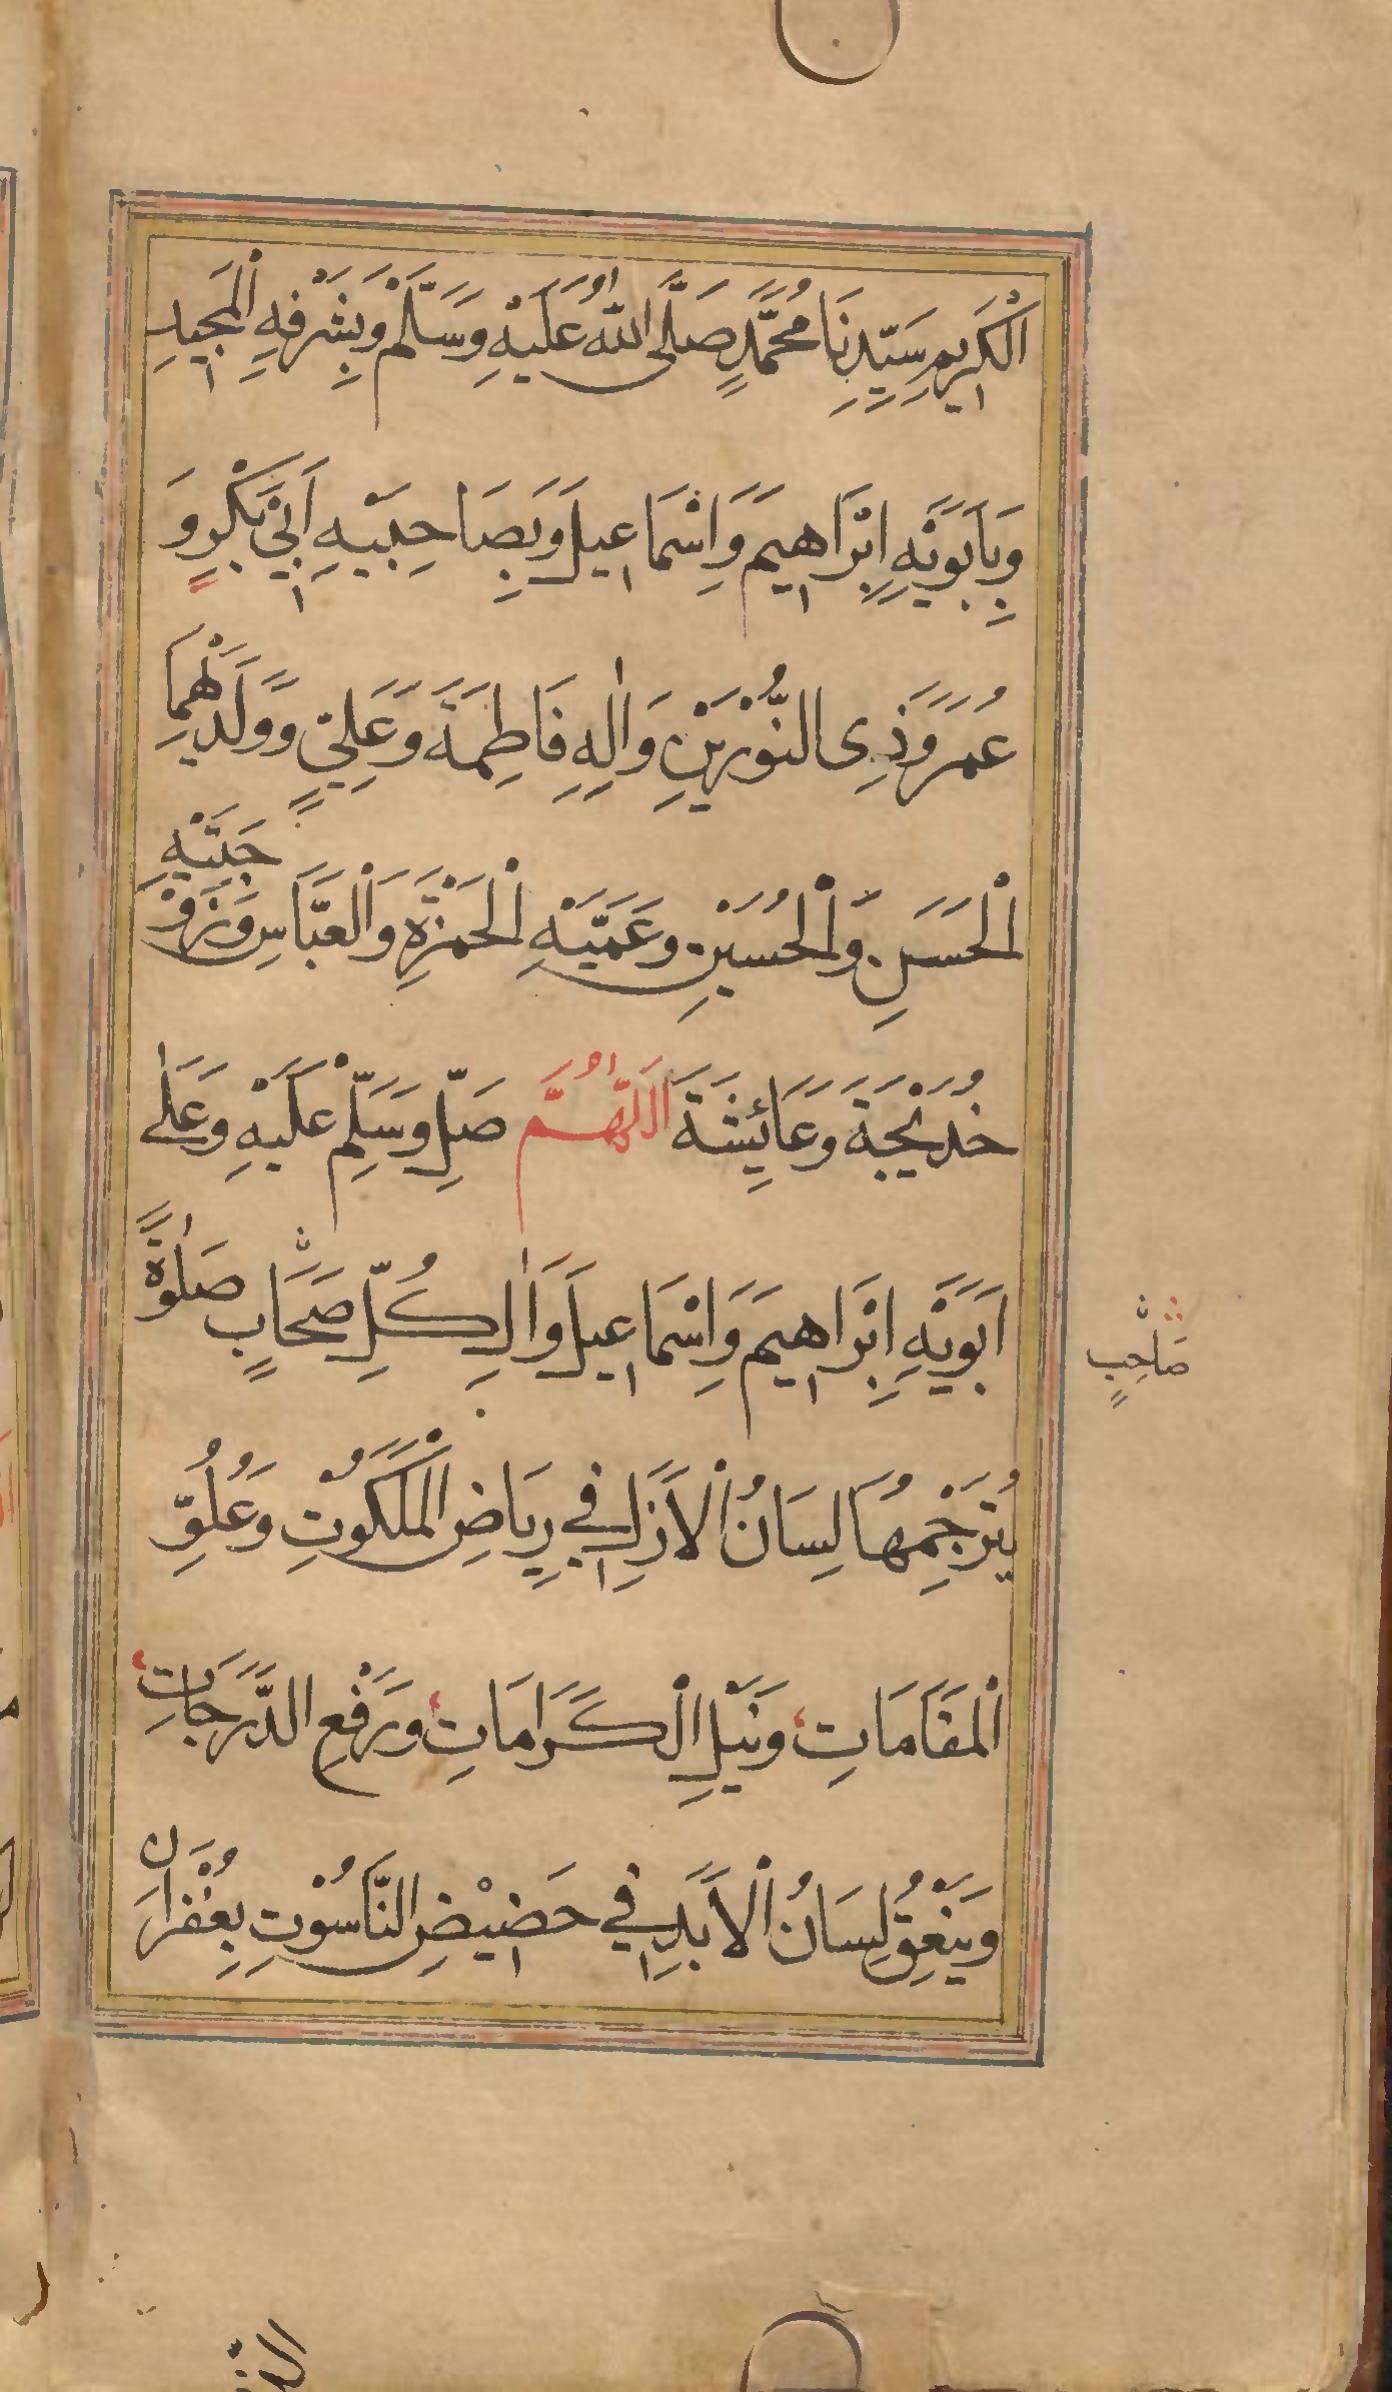 الْكَرِيمِ سَيِّدِنَا مُحَمَّدٍ صَلَّى اللهُ عَلَيْهِ وَسَلَّمَ وَبِشَرْفِهِ الْمَجِيدِ
وَبِاَبَوَيْهِ اِبْرَاهِيمَ وَاِسْمَاعِيلَ وَبِصَاحِبَيْهِ اَبِي بَكْرٍ وَ
عُمَرَ وَذِى النُّوْرَيْنِ وَاٰلِهِ فَاطِمَةَ وَعَلِيٍّ وَوَلَدَيْهِمَا
الْحَسَنِ وَالْحُسَيْنِ وَعَمَّيْهِ الْحَمْزَةِ وَالْعَبَّاسِ وَزَوْجَتَيْهِ
خُدَيْجَةَ وَعَائِشَةَ اَللّٰهُمَّ صَلِّ وَسَلِّمْ عَلَيْهِ وَعَلٰى
اَبَوَيْهِ اِبْرَاهِيمَ وَاِسْمَاعِيلَ وَاٰلِ كُلِّ صَحَابٍ صَلٰوةً
صَاحِبٍ
يُتَرْجِمُهَا لِسَانُ الْاَزَلِ فِي رِيَاضِ الْمَلَكُوْتِ وَعُلُوِّ
الْمَقَامَاتِ وَنَيْلِ الْكَرَامَاتِ وَرَفْعِ الدَّرَجَاتِ
وَيَنْعِقُ لِسَانُ الْاَبَدِ فِي حَضِيْضِ النَّاسُوْتِ بِغُفْرَانِ